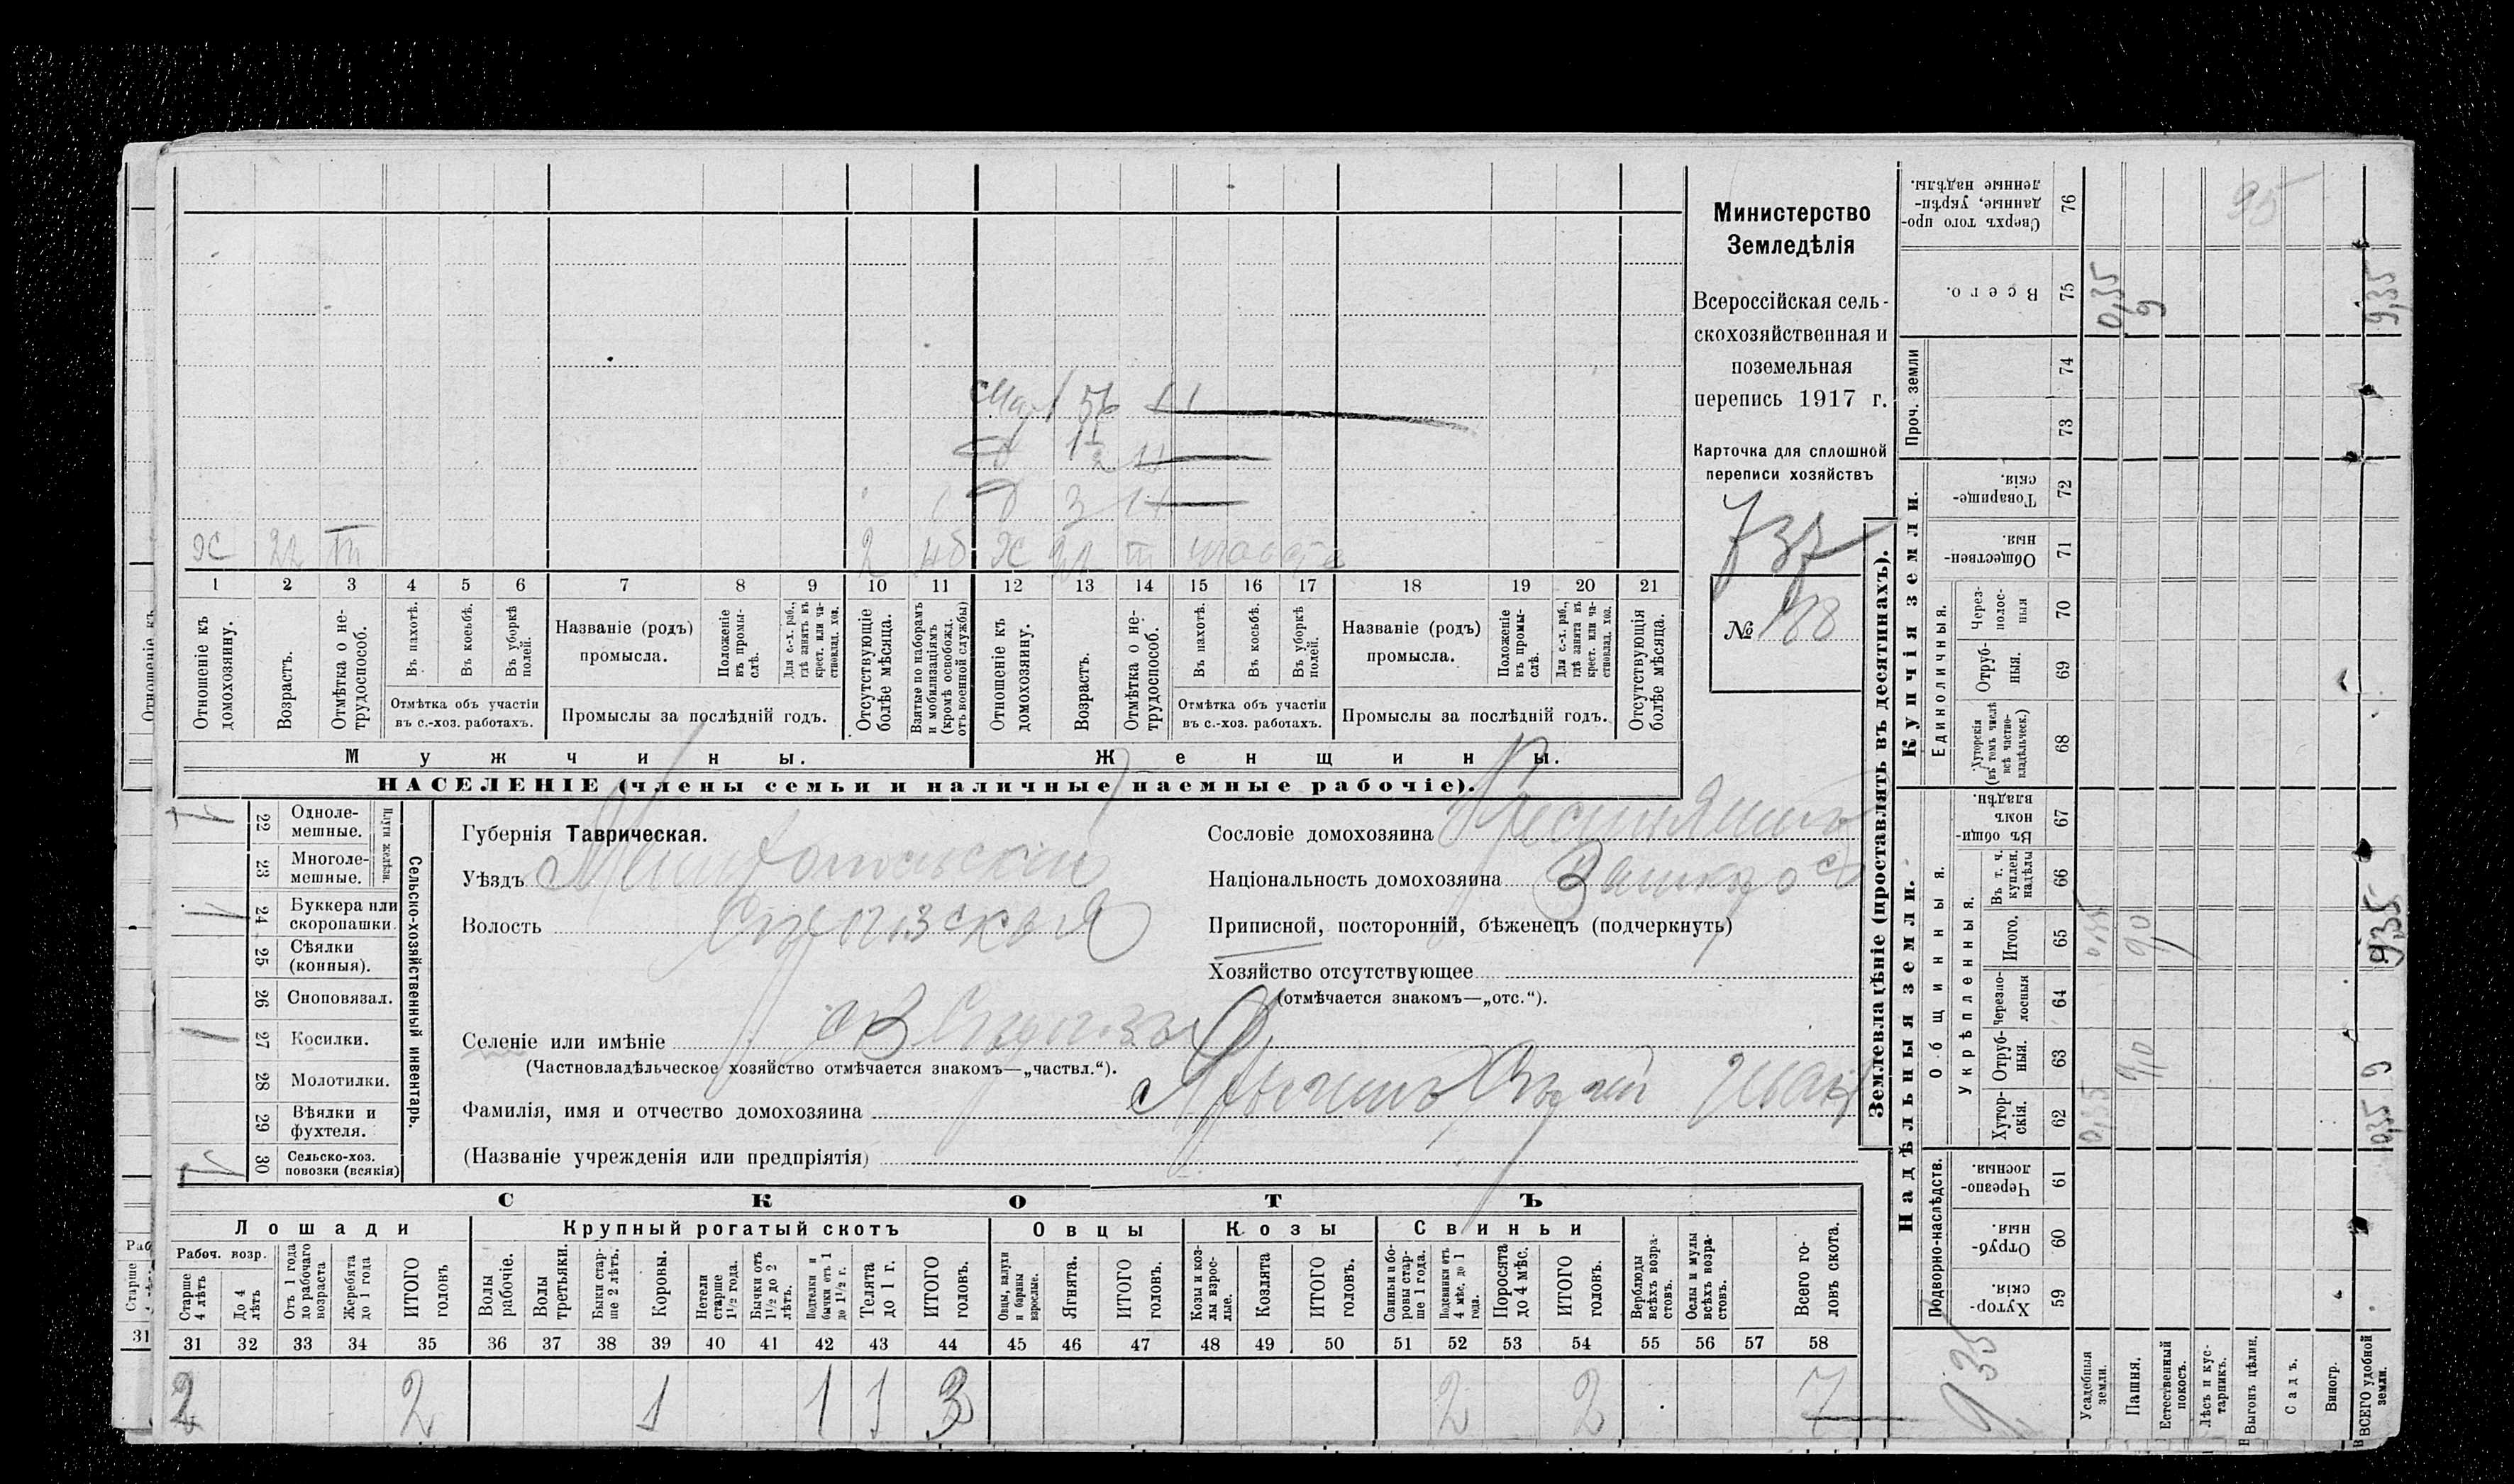 Министерство
Земледѣлія
Всероссійская сель-
скохозяйственная и
поземельная
перепись 1917 г.
Карточка для сплошной
переписи хозяйствъ
737
№ 188
56
1½
3
Х 22 III 2 Нб Х 22 III
1 2 3 4 5 6 7 8 9 10 11 12 13 14 15 16 17 18 19 20 21
Отношеніе къ домохозяину.
Возрастъ.
Отмѣтка о не-трудоспособ.
Въ пахотѣ.
Въ косьбѣ.
Въ уборкѣ полей.
Отмѣтка объ участіи
въ с.-хоз. работахъ.
Названіе (родъ)
промысла.
Положеніе въ промы-слѣ.
Для с.-х. раб., гдѣ занятъ въ крест. или ча-стновлад. хоз.
Промыслы за послѣдній годъ.
Отсутствующіе болѣе мѣсяца.
Взятые по наборамъ и мобилизаціямъ (кромѣ освобожд. отъ военной службы)
Отношеніе къ домохозяину.
Возрастъ.
Отмѣтка о не-трудоспособ.
Въ пахотѣ.
Въ косьбѣ.
Въ уборкѣ полей.
Отмѣтка объ участіи
въ с.-хоз. работахъ.
Названіе (родъ)
промысла.
Положеніе въ промы-слѣ.
Для с.-х. раб., гдѣ занята въ крест. или ча-стновлад. хоз.
Промыслы за послѣдній годъ.
Отсутствующія болѣе мѣсяца.
Мужчины. Женщины.
НАСЕЛЕНІЕ (члены семьи и наличные наемные рабочіе).
Сельско-хозяйственный инвентарь.
Плуги желѣзн.
22 Однолемешные.
23 Многолемешные.
24 Буккера или скоропашки
25 Сѣялки (конныя).
26 Сноповязал.
27 Косилки.
28 Молотилки.
29 Вѣялки и фухтеля.
30 Сельско-хоз. повозки (всякія)
Губернія Таврическая.
Уѣздъ Мелитопольскій
Волость
Селеніе или имѣніе
(Частновладѣльческое хозяйство отмѣчается знакомъ—„частвл.“).
Фамилія, имя и отчество домохозяина
(Названіе учрежденія или предпріятія)
Сословіе домохозяина Крестьянинъ
Національность домохозяина
Приписной, посторонній, бѣженецъ (подчеркнуть)
Хозяйство отсутствующее
(отмѣчается знакомъ—„отс.“).
СКОТЪ
Лошади Крупный рогатый скотъ Овцы Козы Свиньи
Рабоч. возр.
Старше 4 лѣтъ
До 4 лѣтъ
Отъ 1 года до рабочаго возраста
Жеребята до 1 года
ИТОГО головъ
Волы рабочіе.
Волы третьяки.
Быки стар-ше 2 лѣтъ.
Коровы.
Нетели старше 1½ года.
Бычки отъ 1½ до 2 лѣтъ.
Подтелки и бычки отъ 1 до 1½ г.
Телята до 1 г.
ИТОГО головъ.
Овцы, валухи и бараны взрослые.
Ягнята.
ИТОГО головъ.
Козы и коз-лы взрос-лые.
Козлята
ИТОГО головъ.
Свиньи и бо-ровы стар-ше 1 года.
Подсвинки отъ 4 мѣс. до 1 года.
Поросята до 4 мѣс.
ИТОГО головъ.
Верблюды всѣхъ возра-стовъ.
Ослы и мулы всѣхъ возра-стовъ.
Всего го-ловъ скота.
31 32 33 34 35 36 37 38 39 40 41 42 43 44 45 46 47 48 49 50 51 52 53 54 55 56 57 58
2 2 1 1 1 3 2 2 7
Землевладѣніе (проставлять въ десятинахъ).
Надѣльныя земли.
Купчія земли.
Проч. земли
Подворно-наслѣдств.
Общинныя.
Укрѣпленныя.
Единоличныя.
Сверхъ того про-данные, укрѣп-ленные надѣлы. 76 95
Всего. 75 0,35 9 9,35
74
73
Товарище-скія. 72
Обществен-ныя. 71
Через-полос-ныя 70
Отруб-ныя. 69
Хуторскія (въ томъ числѣ всѣ частно-владѣльческ.) 68
Въ общи-номъ владѣн. 67
Въ т. ч. куплен. надѣлы 66
Итого. 65 0,35 9,0 9,35
Черезпо-лосныя 64
Отруб-ныя. 63 9,0 9
Хутор-скія. 62 0,35 0,35
Черезпо-лосныя. 61
Отруб-ныя. 60
Хутор-скія. 59
9,35
Усадебныя земли.
Пашня.
Естественный покосъ.
Лѣсъ и кус-тарникъ.
Выгонъ цѣлин.
Садъ.
Виногр.
ВСЕГО удобной земли.